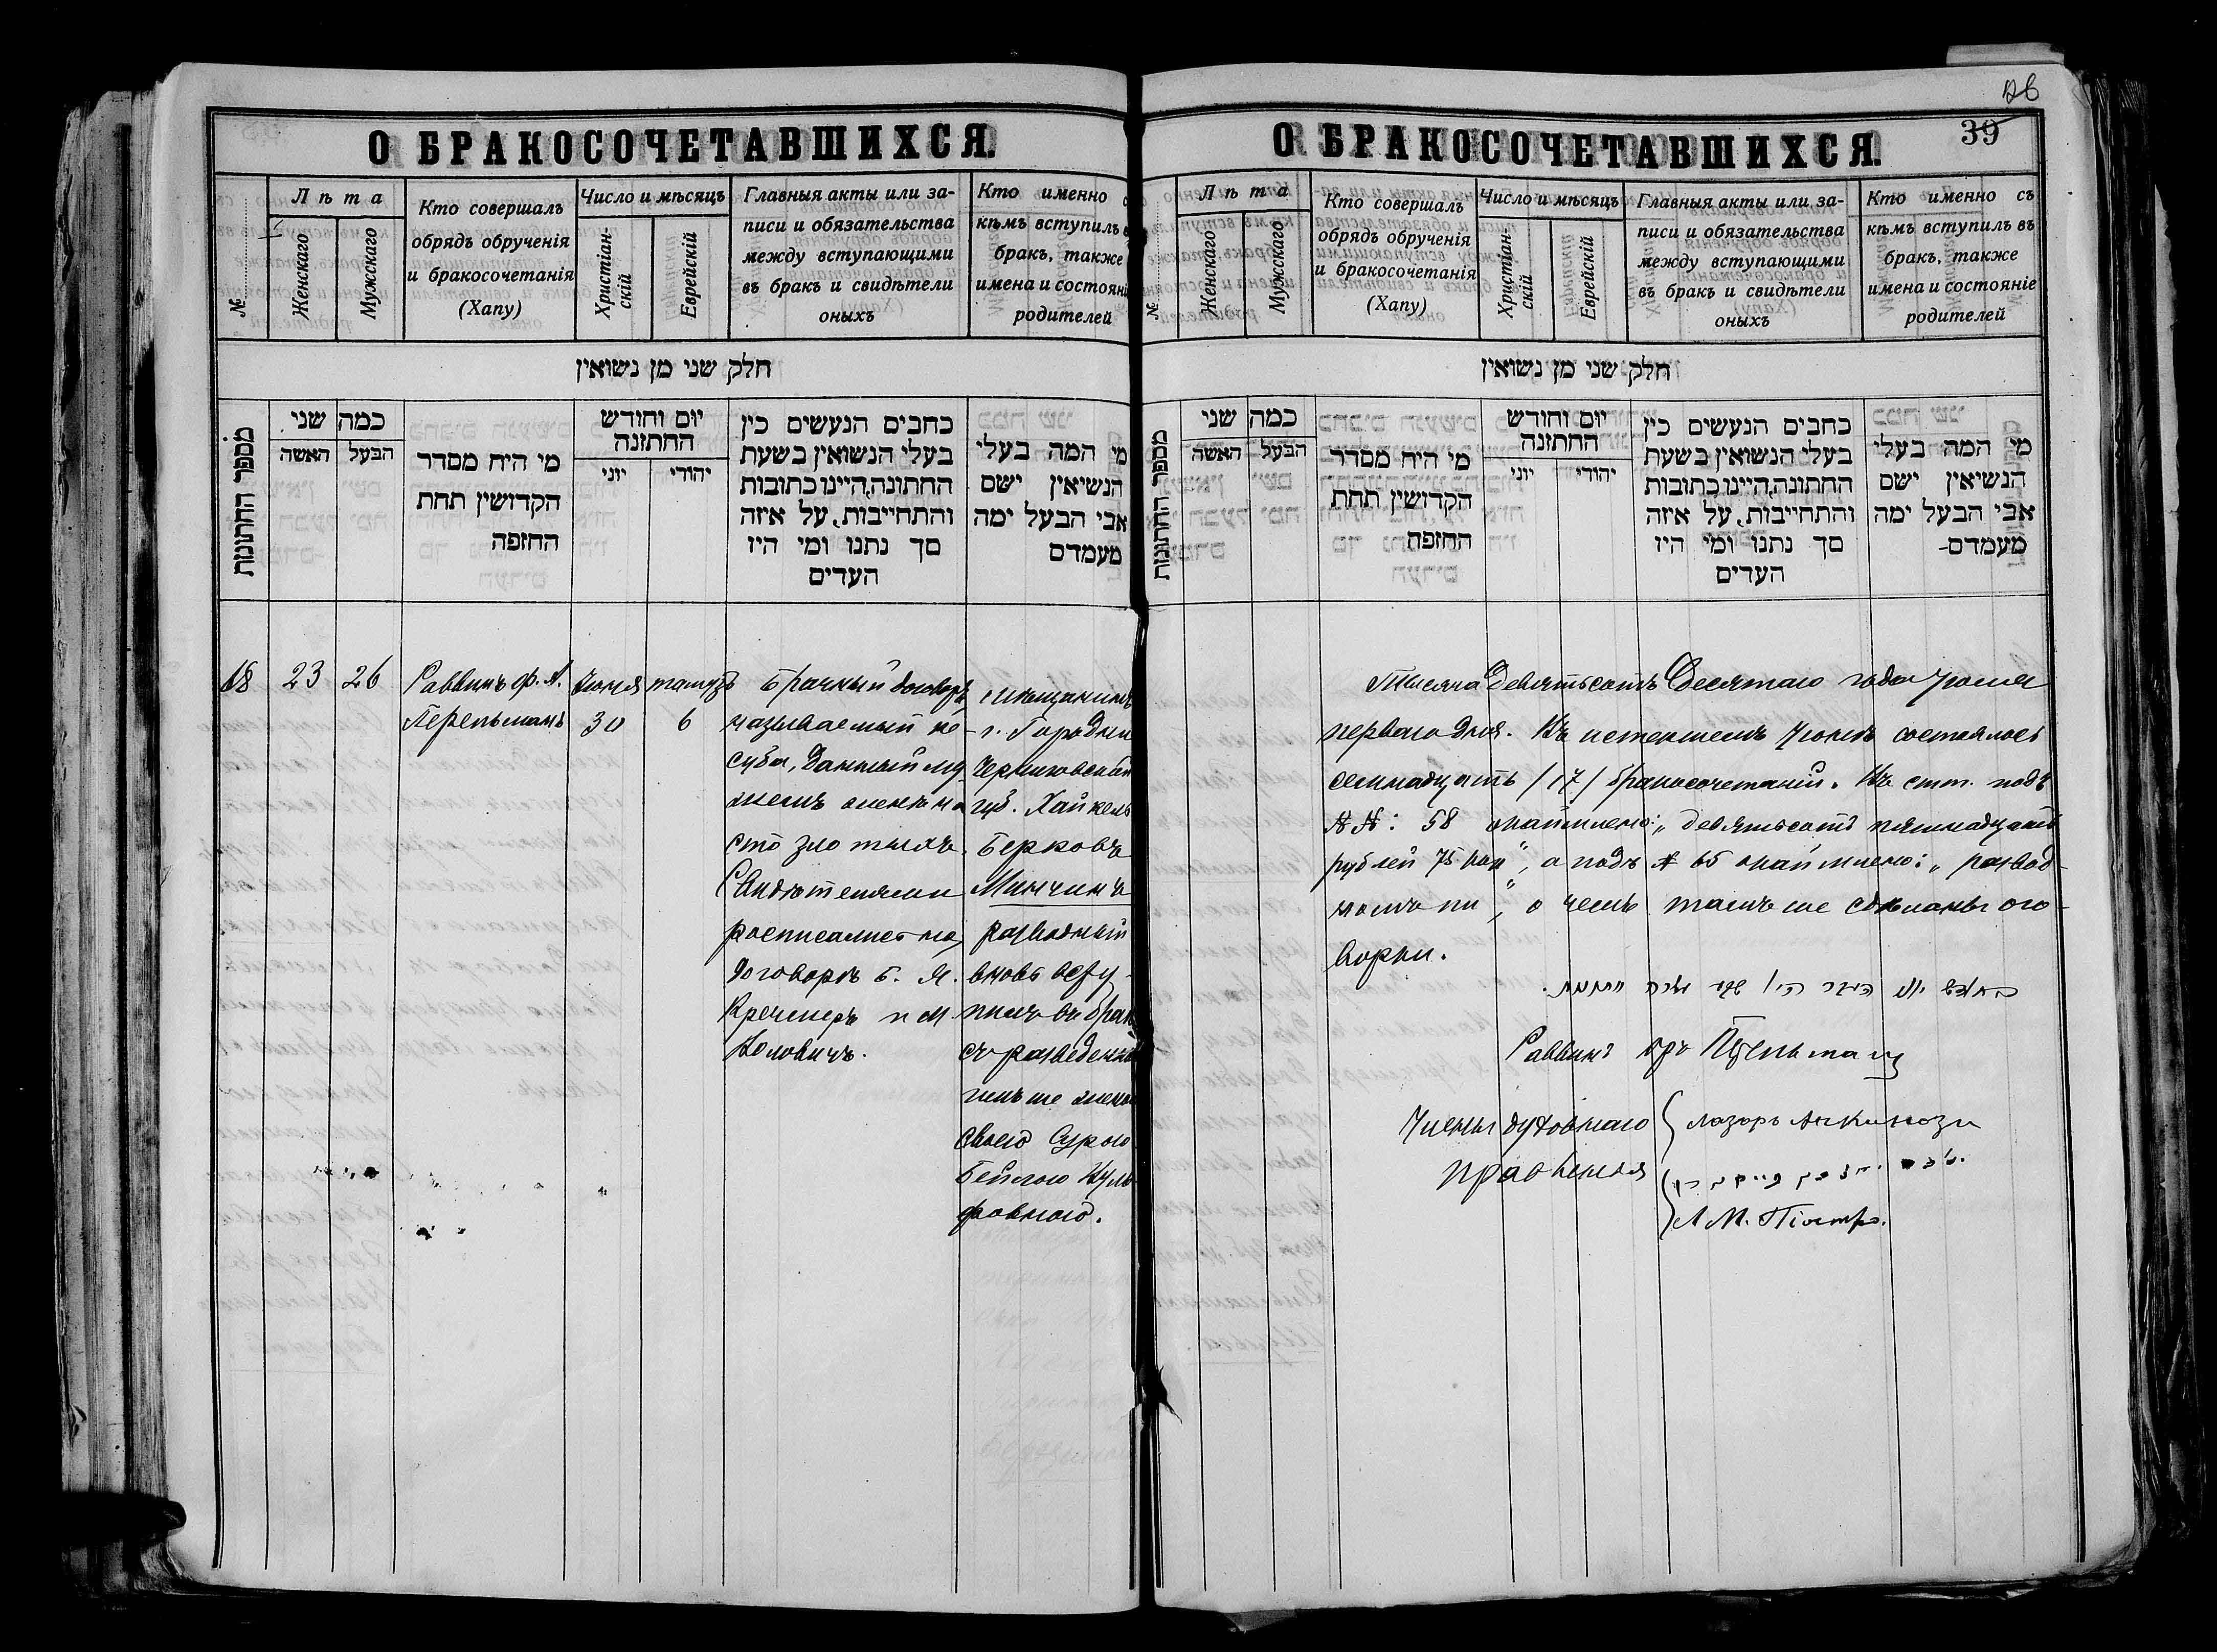 О БРАКОСОЧЕТАВШИХСЯ.
№
Лѣта
Женскаго
Мужскаго
Кто совершалъ
обрядъ обрученія
и бракосочетанія
(Хапу)
Число и мѣсяцъ
Христіан-
скій
Еврейскій
Главныя акты или за-
писи и обязательства
между вступающими
въ бракъ и свидѣтели
оныхъ
Кто именно
кѣмъ вступилъ
бракъ, также
имена и состоян
родителей
חלק שני מן נשואין
מספר החתונות
כמה שני
האשה
הבעל
מי היה מסדר
הקדושין תחת
החופה
יום וחודש
החתונה
יוני
יהודי
כתבים הנעשים בין
בעלי הנשואין בשעת
החתונה, היינו כתובות
והתחייבות, על איזה
סך נתנו ומי היו
העדים
מי המה בעלי
הנשיאין ישם
אבי הבעל ימה
מעמדם
68
23
26
Раввинъ Ф. А.
Перельманъ
Іюня
30
тамузъ
6
Брачный договоръ,
называемый ке-
суба, данный му
жемъ женѣ на
сто злотыхъ.
Свидѣтелями
росписались на
договорѣ Б. Я.
Кречмеръ и М.
Воловичъ.
мѣщанинъ
г. Городни
Черниговской
губ. Хайкель
Берковъ
Минчинъ
разводный
вновь всту-
пилъ въ бракъ
съ разведенной
имъ же женой
своею Сурою
Бейлою Вуль-
фовною.
О БРАКОСОЧЕТАВШИХСЯ.
39
№
Лѣта
Женскаго
Мужскаго
Кто совершалъ
обрядъ обрученія
и бракосочетанія
(Хапу)
Число и мѣсяцъ
Христіан-
скій
Еврейскій
Главныя акты или за-
писи и обязательства
между вступающими
въ бракъ и свидѣтели
оныхъ
Кто именно съ
кѣмъ вступилъ въ
бракъ, также
имена и состояніе
родителей
חלק שני מן נשואין
מספר החתונות
כמה שני
האשה
הבעל
מי היה מסדר
הקדושין תחת
החופה
יום וחודש
החתונה
יוני
יהודי
כתבים הנעשים בין
בעלי הנשואין בשעת
החתונה, היינו כתובות
והתחייבות, על איזה
סך נתנו ומי היו
העדים
מי המה בעלי
הנשיאין ישם
אבי הבעל ימה
מעמדם-
Тысяча девятьсотъ десятаго года Іюля
перваго дня. Въ истекшемъ Іюнѣ состоялось
семнадцать /17/ бракосочетаній. Въ стт. подъ
№№: 58 „девятьсотъ пятнадцать
рублей 75 коп“, а подъ № 65 „развод-
о чемъ тамъ же сдѣланы ого-
ворки.
Раввинъ Перельманъ
Члены духовнаго
правленія
Лазарь
Л М.